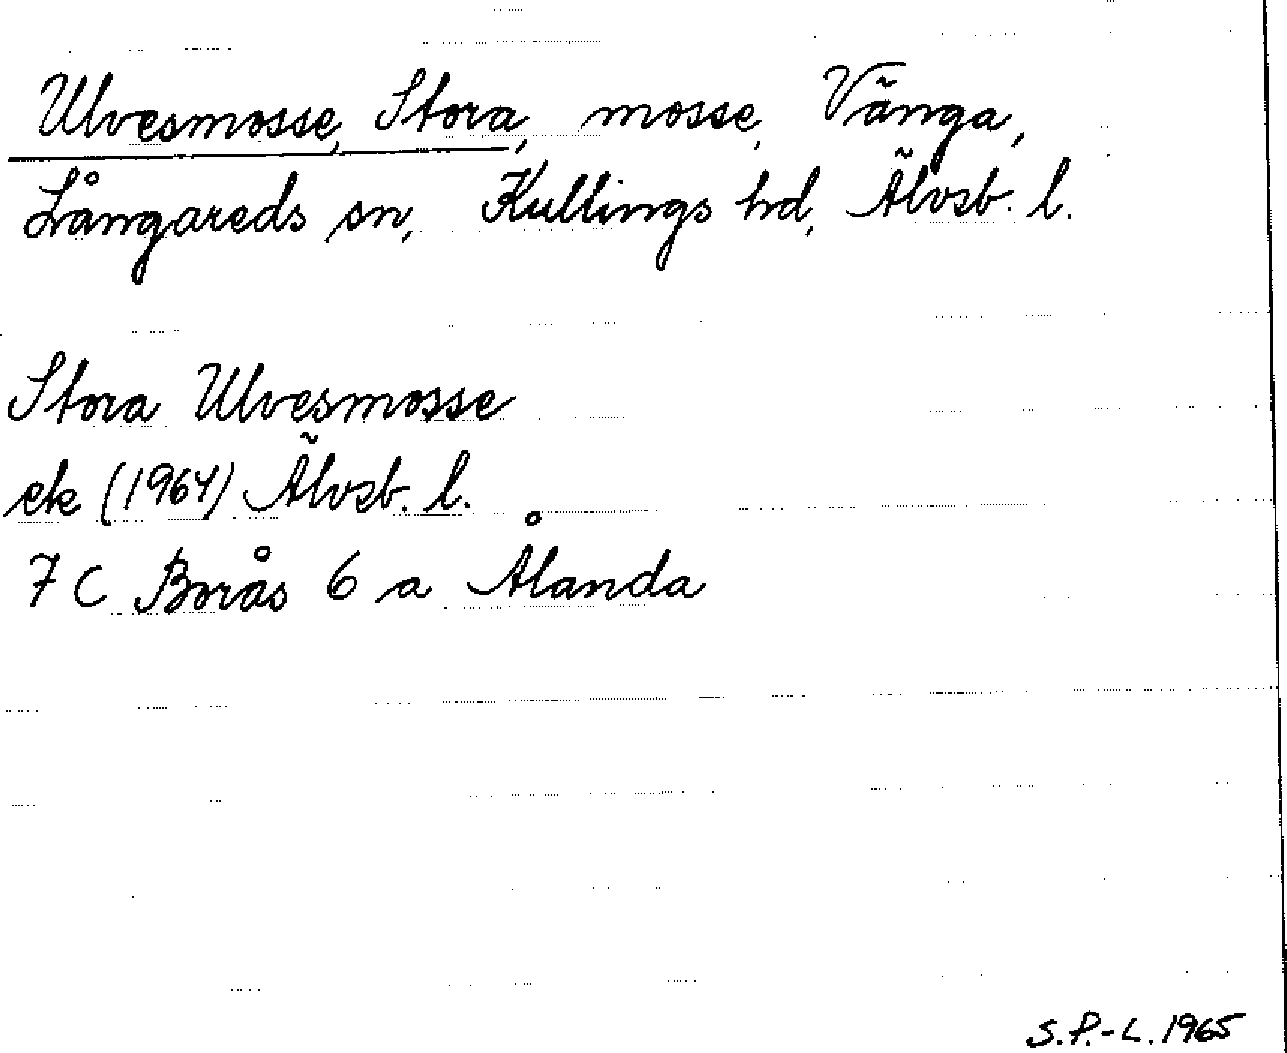 Ulvesmosse, Stora, mosse, Vänga,
Långareds sn, Kullings hd, Älvsb. l.
Stora Ulvesmosse
ek (1964) Älvsb. l.
7 C Borås 6 a Ålanda
S.P.-L. 1965